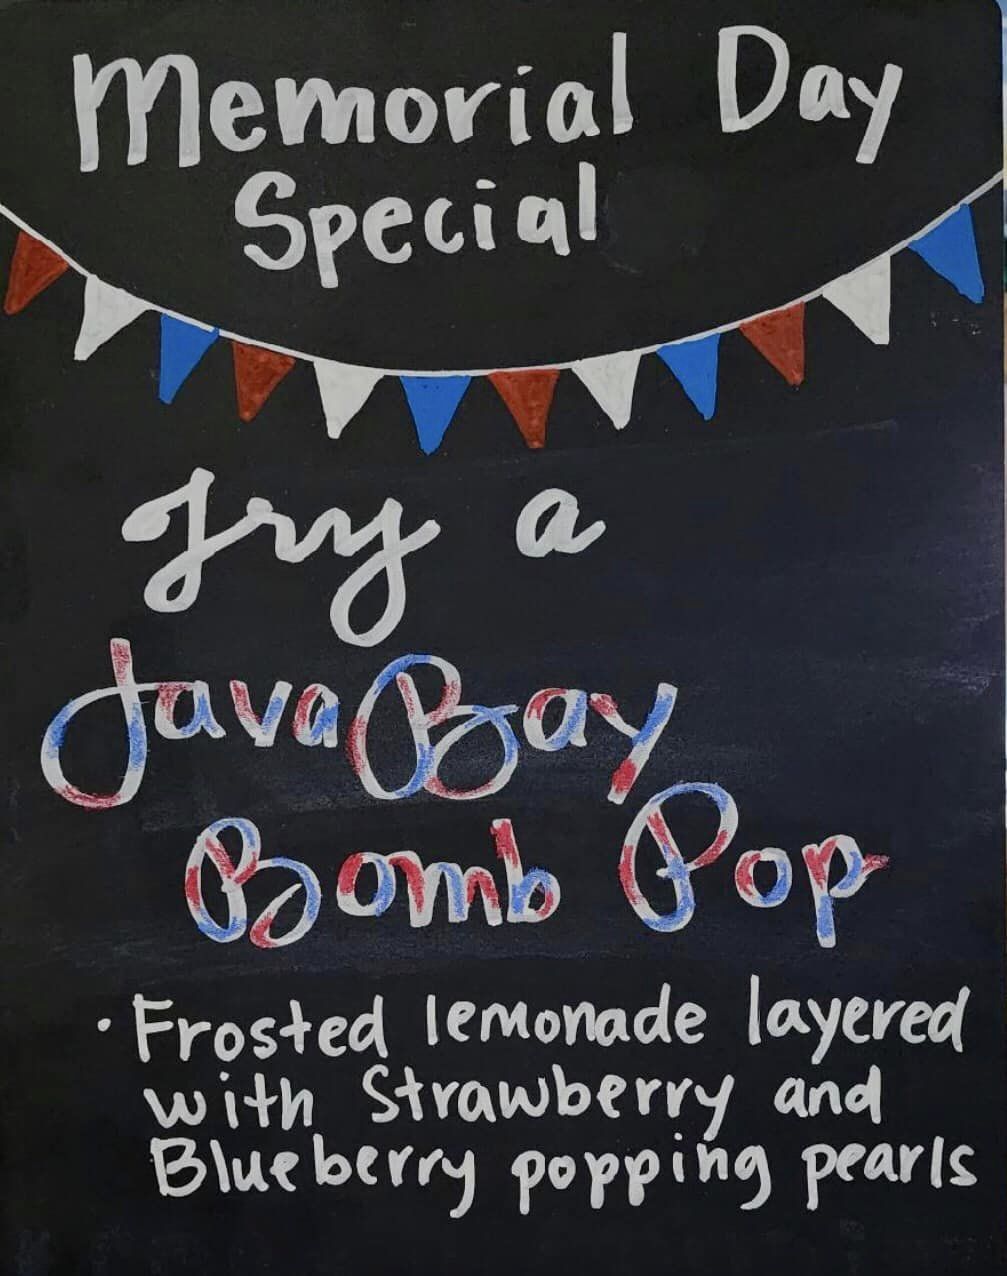 Memorial Day
Special
Try a
JavaBay
Bomb Pop
• Frosted lemonade layered
with Strawberry and
Blueberry popping pearls